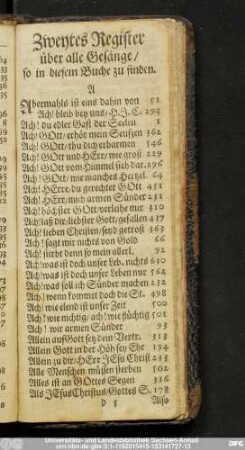 Zweytes Register
über alle Gesänge/
so in diesem Buche zu finden.
A
Abermahls ist eins dahin von 51
Ach! bleib bey uns/H.J.C. 294
Ach! du edler Gast der Seelen
Ach! GOtt/erhör mein Seufzen 362
Ach! GOtt/thu dich erbarmen 546
Ach! GOtt und HErr/wie groß 229
Ach! GOtt vom Himmel sieh dar. 296
Ach! GOtt/wie manches Hertzel. 64
Ach! HErre/du gerechter GOtt 451
Ach! HErr/mich armen Sünder 231
Ach! höchster GOtt/verleihe mir 310
Ach! laß dir/liebster Gott/gefallen 437
Ach! lieben Christen/seyd getrost 363
Ach! sagt mir nichts von Gold 66
Ach! stirbt denn so mein allerl. 92
Ach! was ist doch unser Leb. nichts 610
Ach! was ist doch unser Leben nur 562
Ach! was soll ich Sünder machen 232
Ach! wenn kommet doch die St. 498
Ach! wie elend ist unser Zeit 500
Ach! wie nichtig/ach! wie flüchtig 501
Ach! wir armen Sünder 93
Allein auf Gott setz dein Vertr. 313
Allein Gott in der Höh sey Ehr 194
Allein zu dir/HErr JEsu Christ 233
Alle Menschen müssen sterben 502
Alles ist an GOttes Segen 316
Als JEsus Christus/Gottes S. 178
d 5 Also